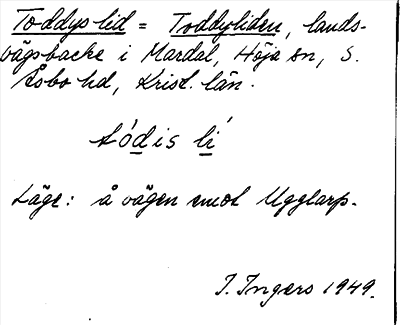 Toddys lid = Toddyliden, lands-
vägsbacke i Mardal, Höja sn, S.
Åsbo hd, Krist. län.
tódis lí
Läge: å vägen emot Ugglarp.
I. Ingers 1949.